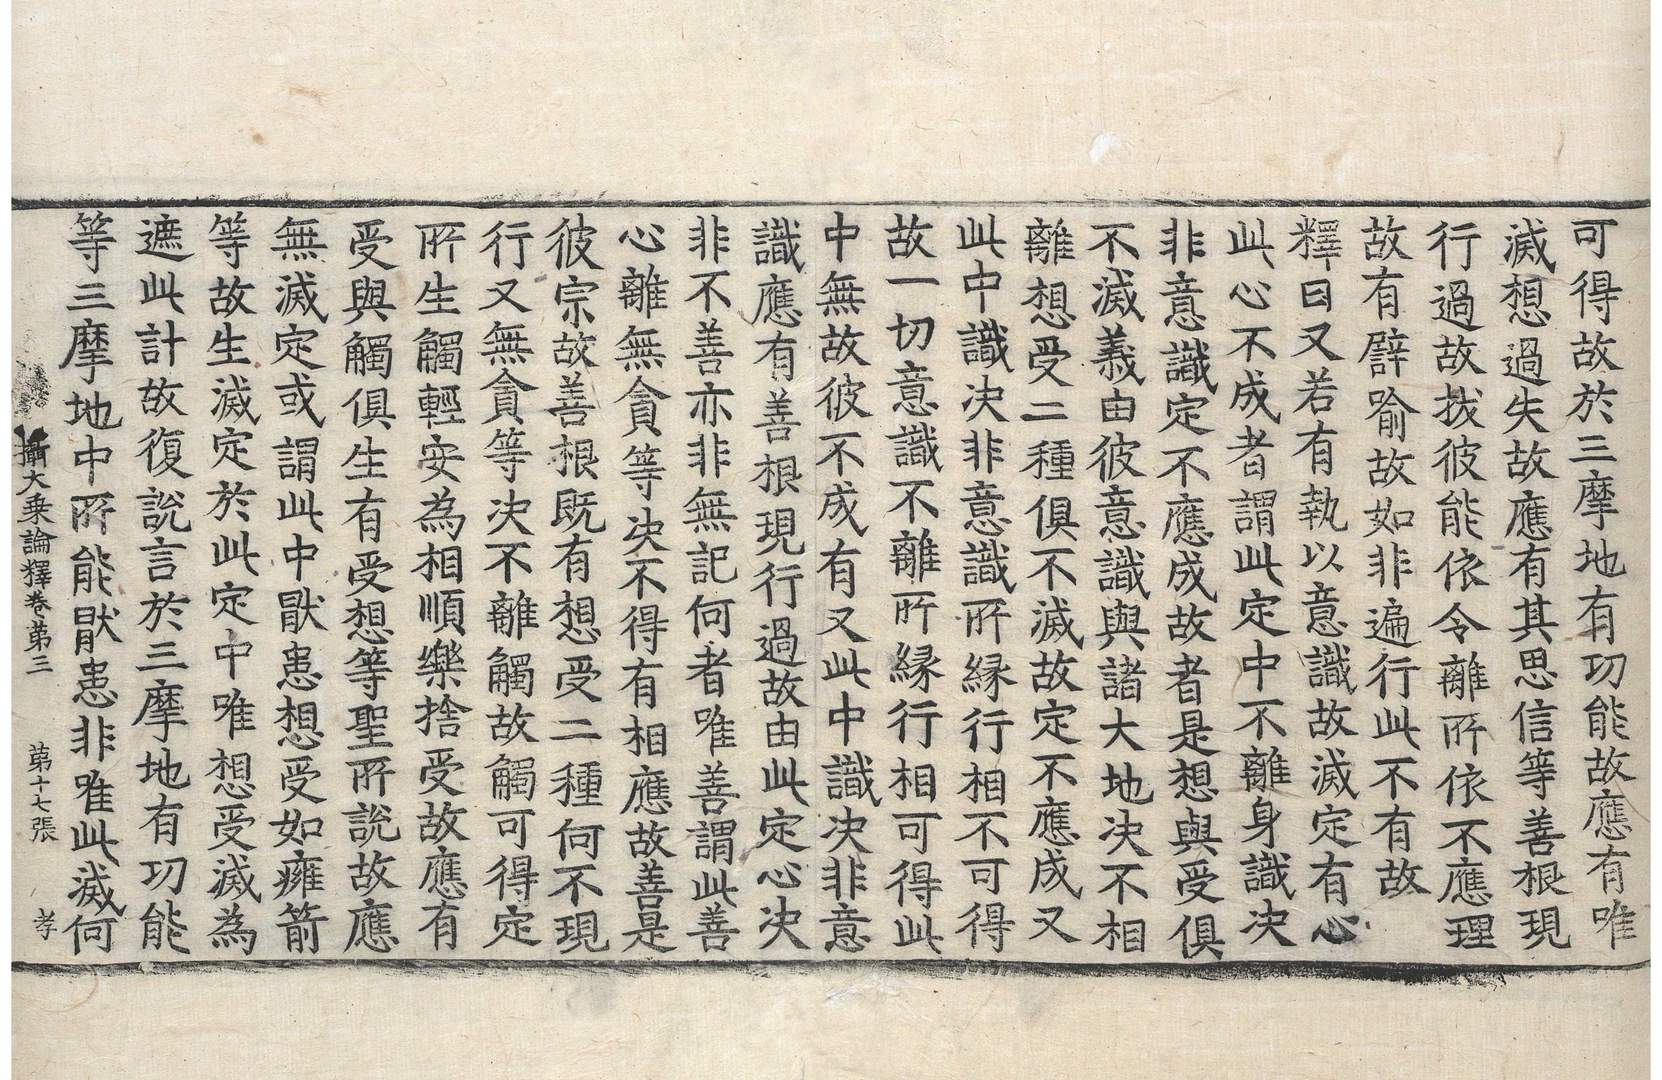 可得故於三摩地有功能故應有唯
滅想過失故應有其思信等善根現
行過故拔彼能依令離所依不應理
故有譬喻故如非遍行此不有故
釋曰又若有執以意識故滅定有心
此心不成者謂此定中不離身識決
非意識定不應成故者是想與受俱
不滅義由彼意識與諸大地決不相
離想受二種俱不滅故定不應成又
此中識決非意識所緣行相不可得
故一切意識不離所緣行相可得此
中無故彼不成有又此中識決非意
識應有善根現行過故由此定心決
非不善亦非無記何者唯善謂此善
心離無貪等決不得有相應故善是
彼宗故善根既有想受二種何不現
行又無貪等決不離觸故觸可得定
所生觸輕安為相順樂捨受故應有
受與觸俱生有受想等聖所說故應
無滅定或謂此中猒患想受如癰箭
等故生滅定於此定中唯想受滅為
遮此計故復說言於三摩地有功能
等三摩地中所能猒患非唯此滅何
攝大乗論釋卷第三 第十七張 孝